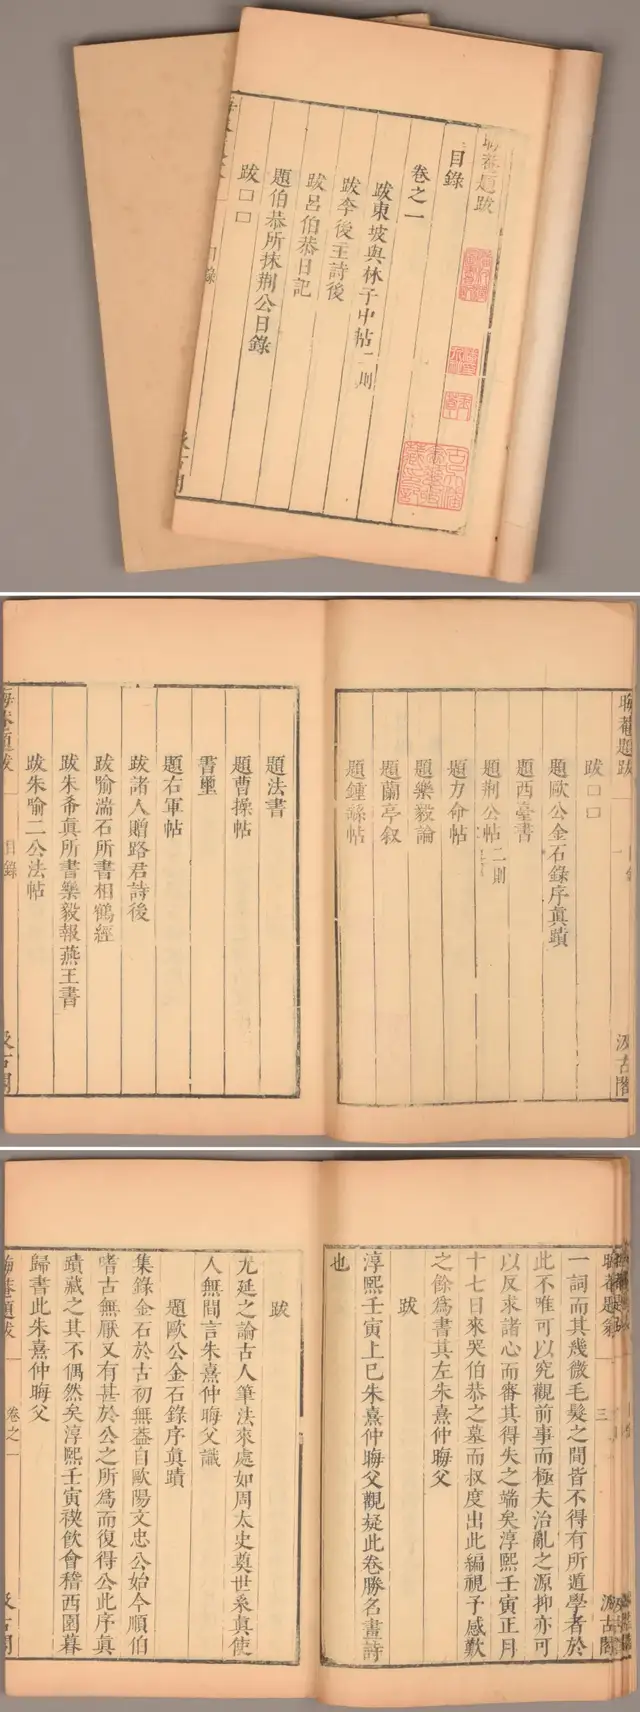 晦菴題跋
目錄
卷之一
跋東坡與林子中帖二則
跋李後主詩後
跋呂伯恭日記
題伯恭所抹荆公日錄
跋□□
目錄
汲古閣
晦菴題跋
跋□□
題歐公金石錄序眞蹟
題西臺書
題荆公帖二則
題力命帖
題樂毅論
題蘭亭叙
題鍾繇帖
汲古閣
題法書
題曹操帖
書璽
題右軍帖
跋諸人贈路君詩後
跋喻湍石所書相鶴經
跋朱希眞所書樂毅報燕王書
跋朱喻二公法帖
目錄
汲古閣
晦菴題跋
三
汲古閣
一詞而其幾微毛髮之間皆不得有所遁學者於
此不唯可以究觀前事而極夫治亂之源抑亦可
以反求諸心而審其得失之端矣淳熙壬寅正月
十七日來哭伯恭之墓而叔度出此編視予感歎
之餘爲書其左朱熹仲晦父
跋
淳熙壬寅上巳朱熹仲晦父觀疑此卷勝名書詩
也
跋
尤延之論古人筆法來處如周太史奠世系眞使
人無間言朱熹仲晦父識
題歐公金石錄序眞蹟
集錄金石於古初無蓋自歐陽文忠公始今順伯
嗜古無厭又有甚於公之所爲而復得公此序眞
蹟藏之其不偶然矣淳熙壬寅禊飲會稽西園暮
歸書此朱熹仲晦父
晦菴題跋
卷之一
汲古閣